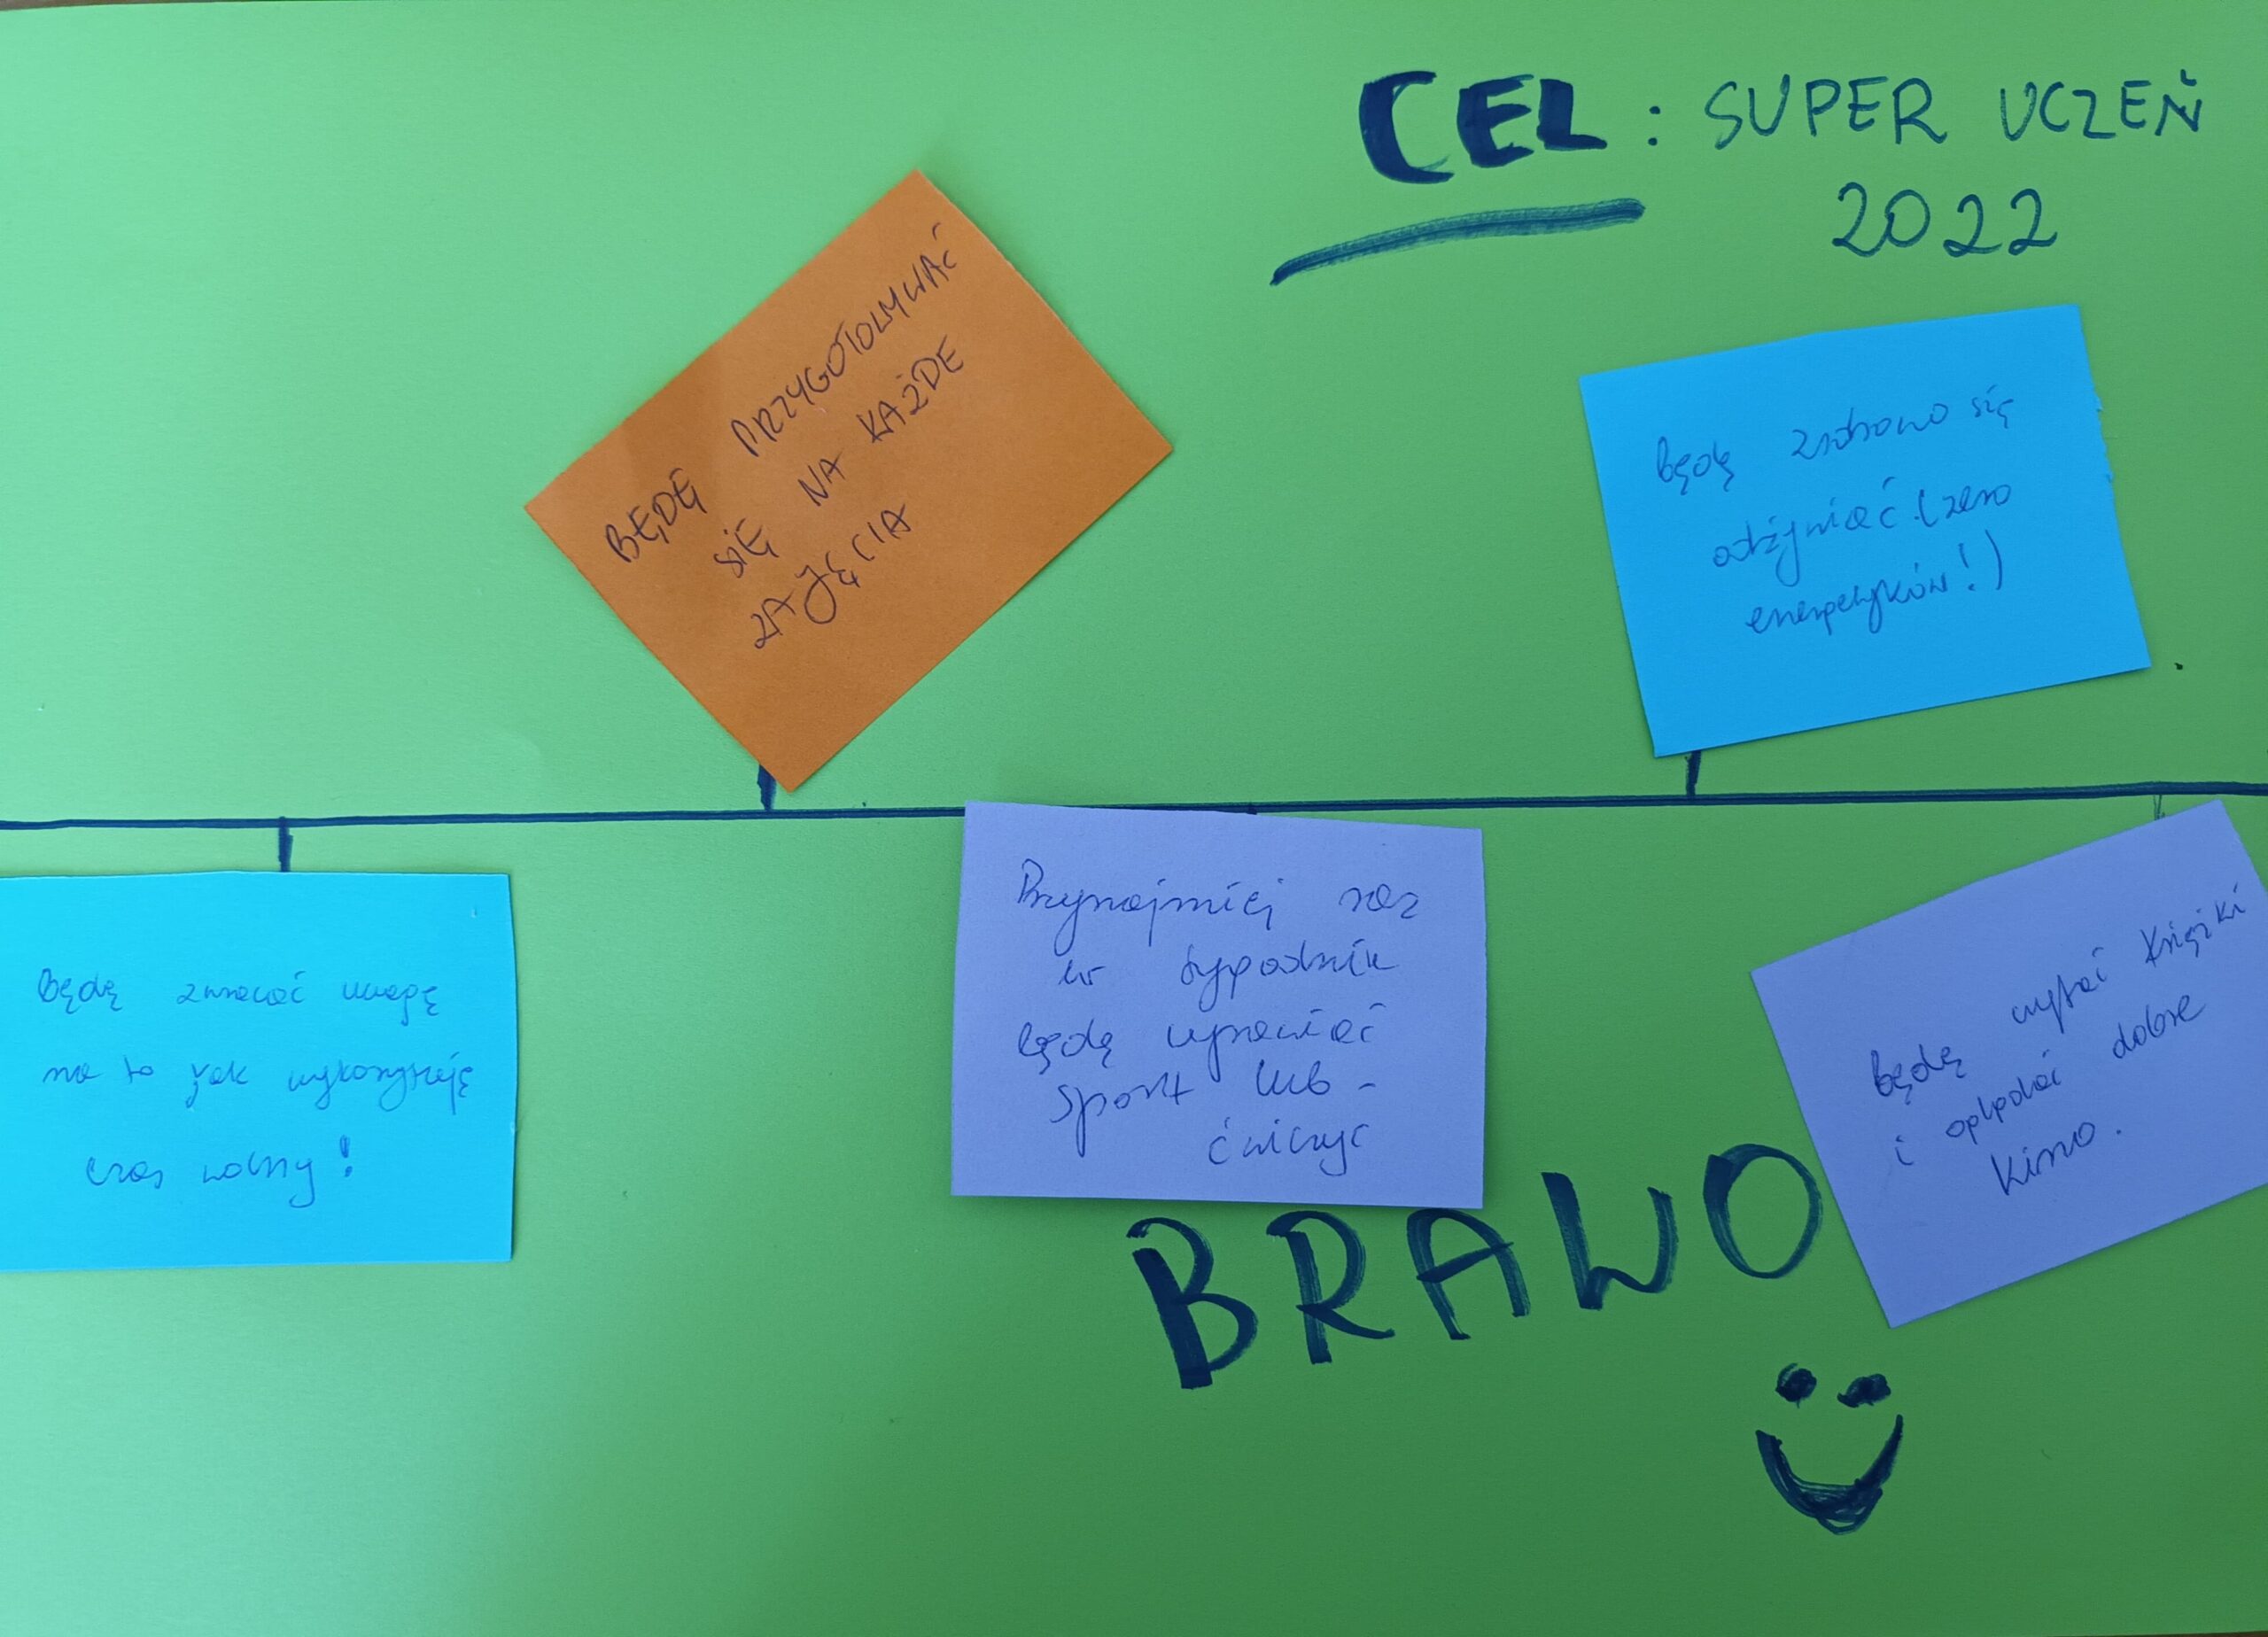 CEL: SUPER UCZEŃ
2022
BĘDĘ PRZYGOTOWYWAĆ
SIĘ NA KAŻDE
ZAJĘCIA
będę zdrowo się
odżywiać (zero
energetyków!)
będę zwracać uwagę
na to jak wykorzystuję
czas wolny!
Przynajmniej raz
w tygodniu
będę uprawiać
sport lub -
ćwiczyć
będę czytać książki
i oglądać dobre
kino.
BRAWO